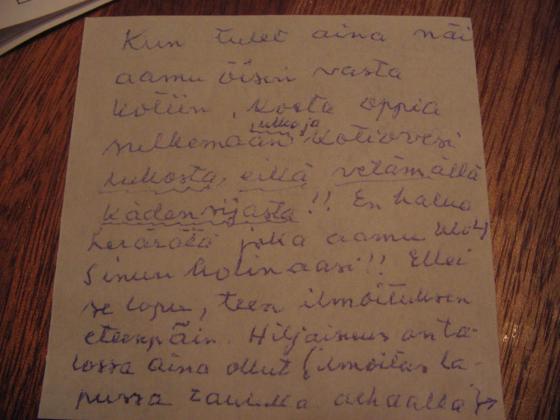 Kun tulet aina näi
aamu öisin vasta
kotiin, koeta oppia
sulkemaan ulko ja kotiovesi
lukosta, eikä vetämällä
kädensijasta!! En halua
herätä joka aamu klo 4
Sinun kolinaasi!! Ellei
se lopu, teen ilmoituksen
eteenpäin. Hiljaisuus on ta-
lossa aina ollut (ilmoitus la-
pussa taululla alhaalla)